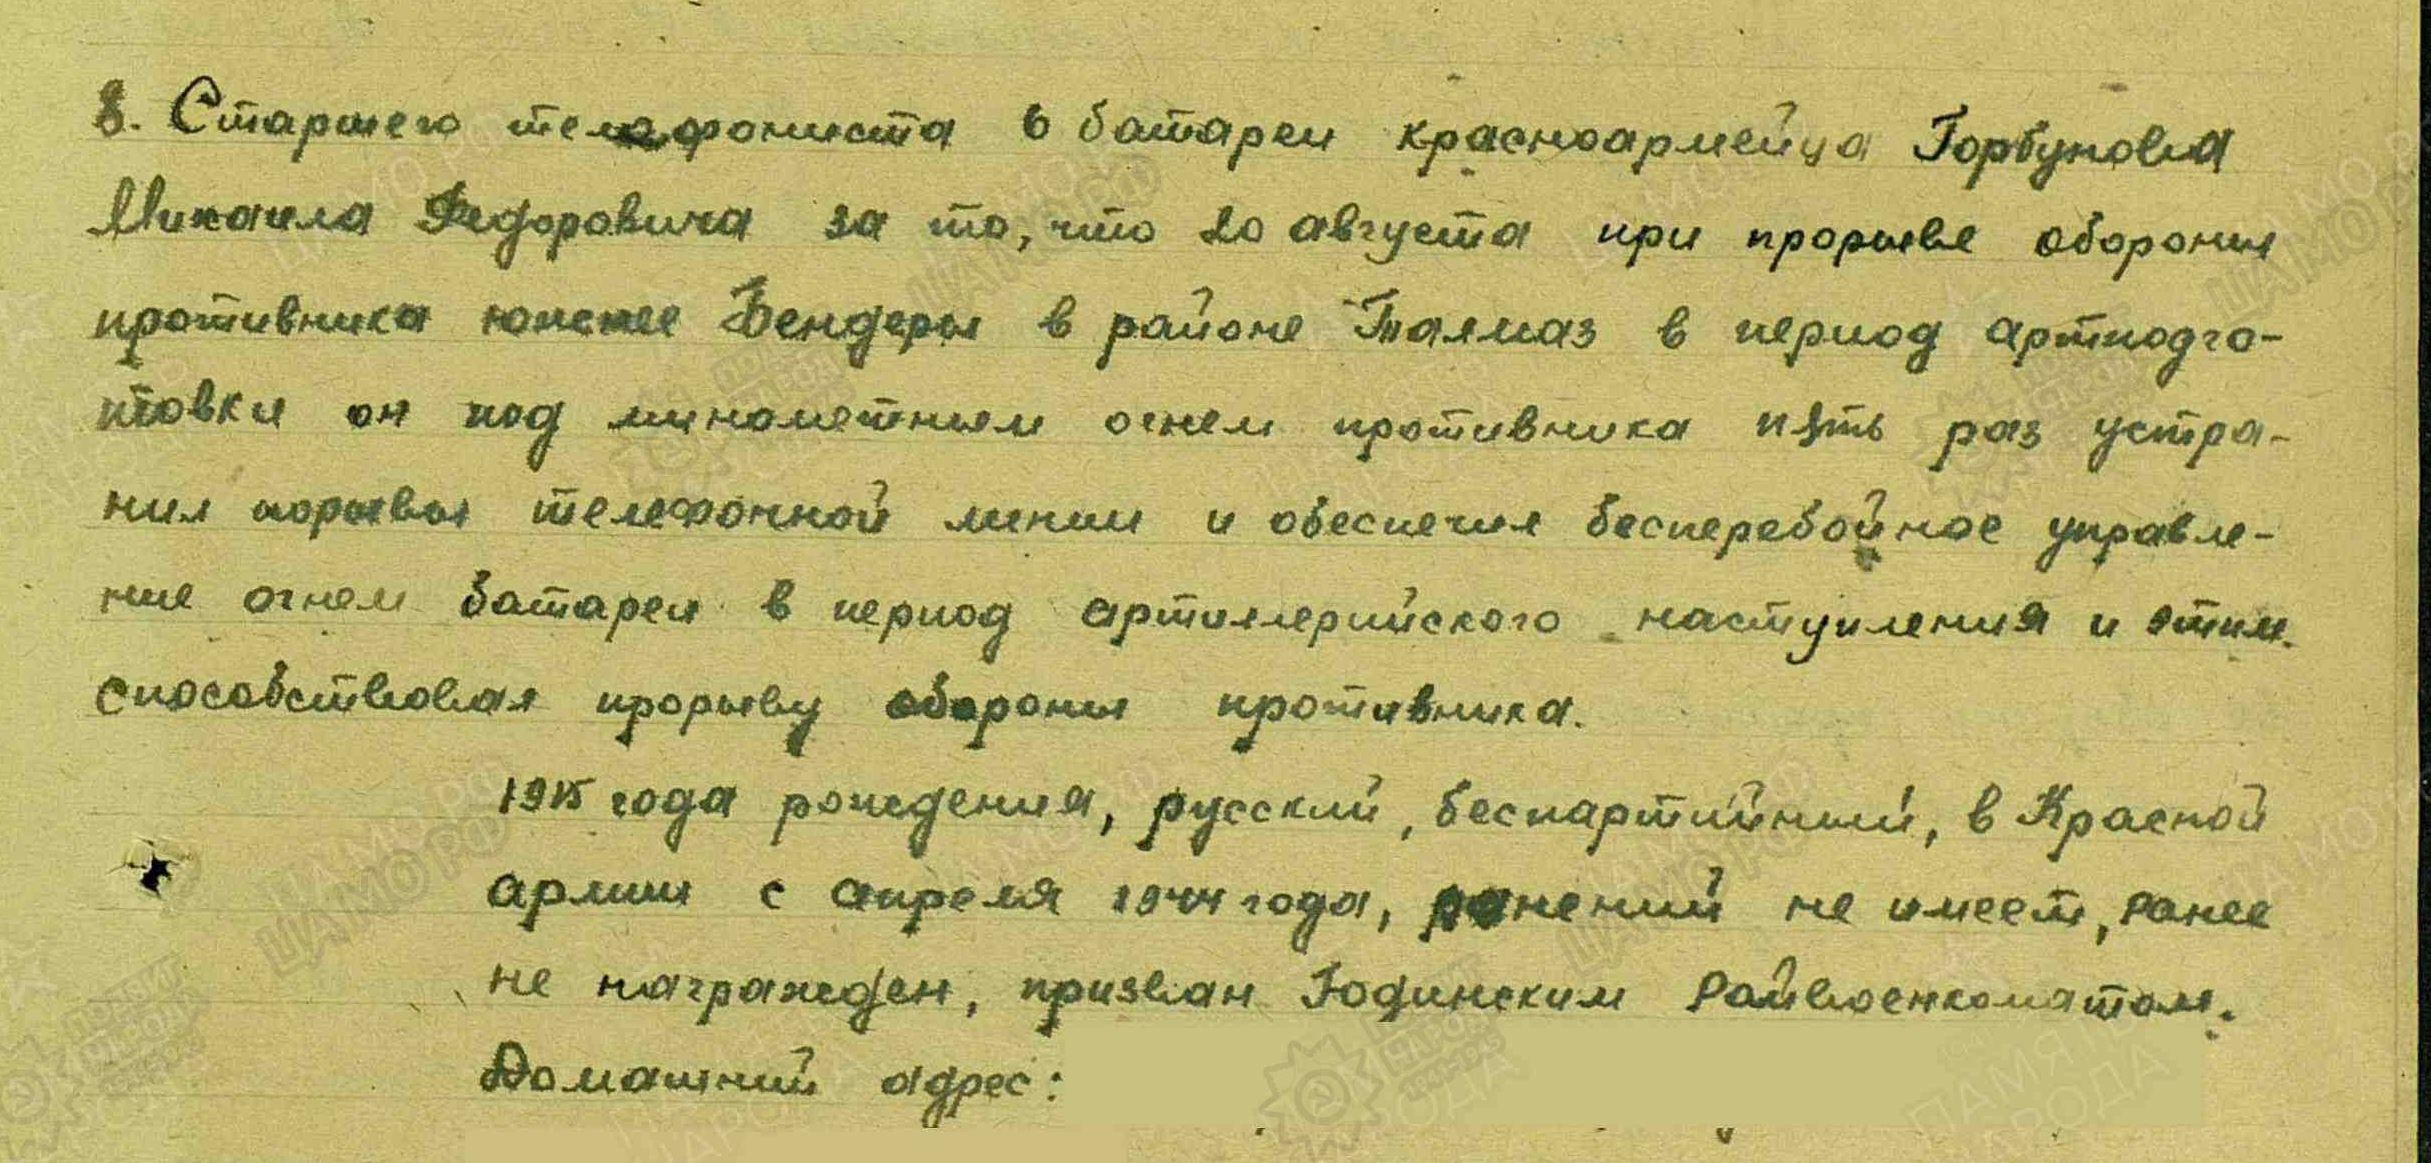 8. Старшего телефониста 6 батареи красноармейца Горбунова
Михаила Федоровича за то, что 20 августа при прорыве обороны
противника южнее Бендеры в районе Талмаз в период артподго-
товки он под минометным огнем противника пять раз устра-
нил порывы телефонной линии и обеспечил бесперебойное управле-
ние огнем батареи в период артиллерийского наступления и этим
способствовал прорыву обороны противника.
1915 года рождения, русский, беспартийный, в Красной
армии с апреля 1944 года, ранений не имеет, ранее
не награжден, призван Годинским Райвоенкоматом.
Домашний адрес: